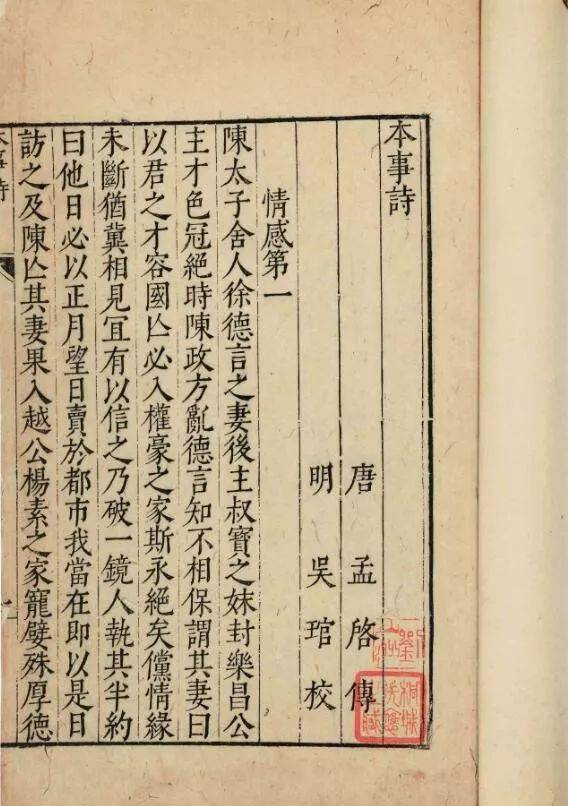 本事詩
唐 孟啓傳
明 吳琯校
情感第一
陳太子舍人徐德言之妻後主叔寶之妹封樂昌公
主才色冠絕時陳政方亂德言知不相保謂其妻曰
以君之才容國亾必入權豪之家斯永絕矣儻情緣
未斷猶冀相見冝有以信之乃破一鏡人執其半約
曰他日必以正月望日賣於都市我當在即以是日
訪之及陳亾其妻果入越公楊素之家寵嬖殊厚德
本事詩